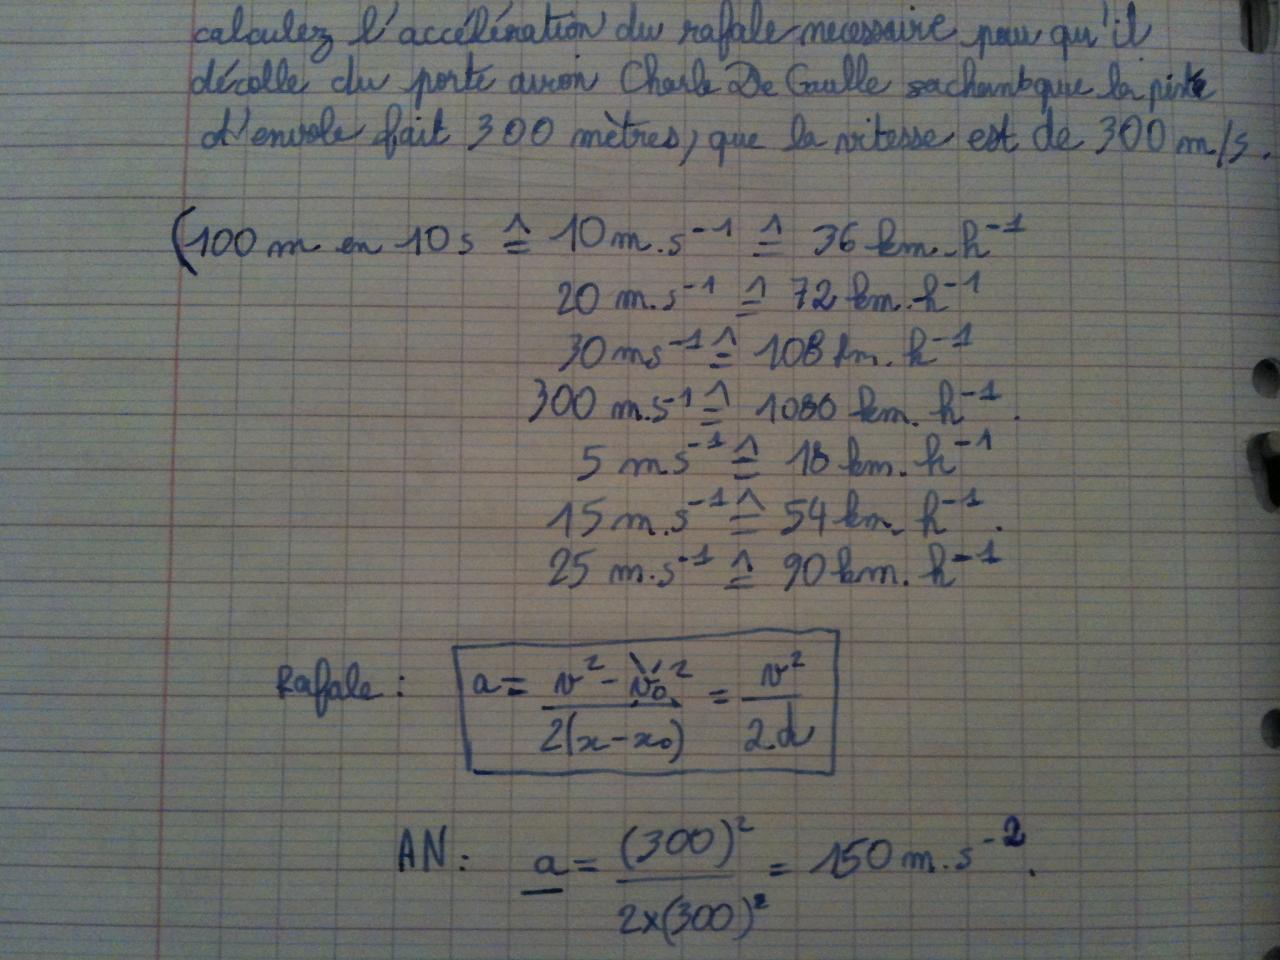 calculez l'accélération du rafale necessaire pour qu'il
décolle du porte avion Charle De Gaulle sachant que la piste
d'envole fait 300 mètres, que la vitesse est de 300 m/s.
(100 m en 10 s ≙ 10 m.s⁻¹ ≙ 36 km.h⁻¹
20 m.s⁻¹ ≙ 72 km.h⁻¹
30 ms⁻¹ ≙ 108 km.h⁻¹
300 m.s⁻¹ ≙ 1080 km.h⁻¹.
5 m.s⁻¹ ≙ 18 km.h⁻¹
15 m.s⁻¹ ≙ 54 km.h⁻¹.
25 m.s⁻¹ ≙ 90 km.h⁻¹
Rafale : a = (v² - v₀²)/(2(x-x₀)) = v²/(2.d)
AN : a = (300)²/(2×(300)²) = 150 m.s⁻².